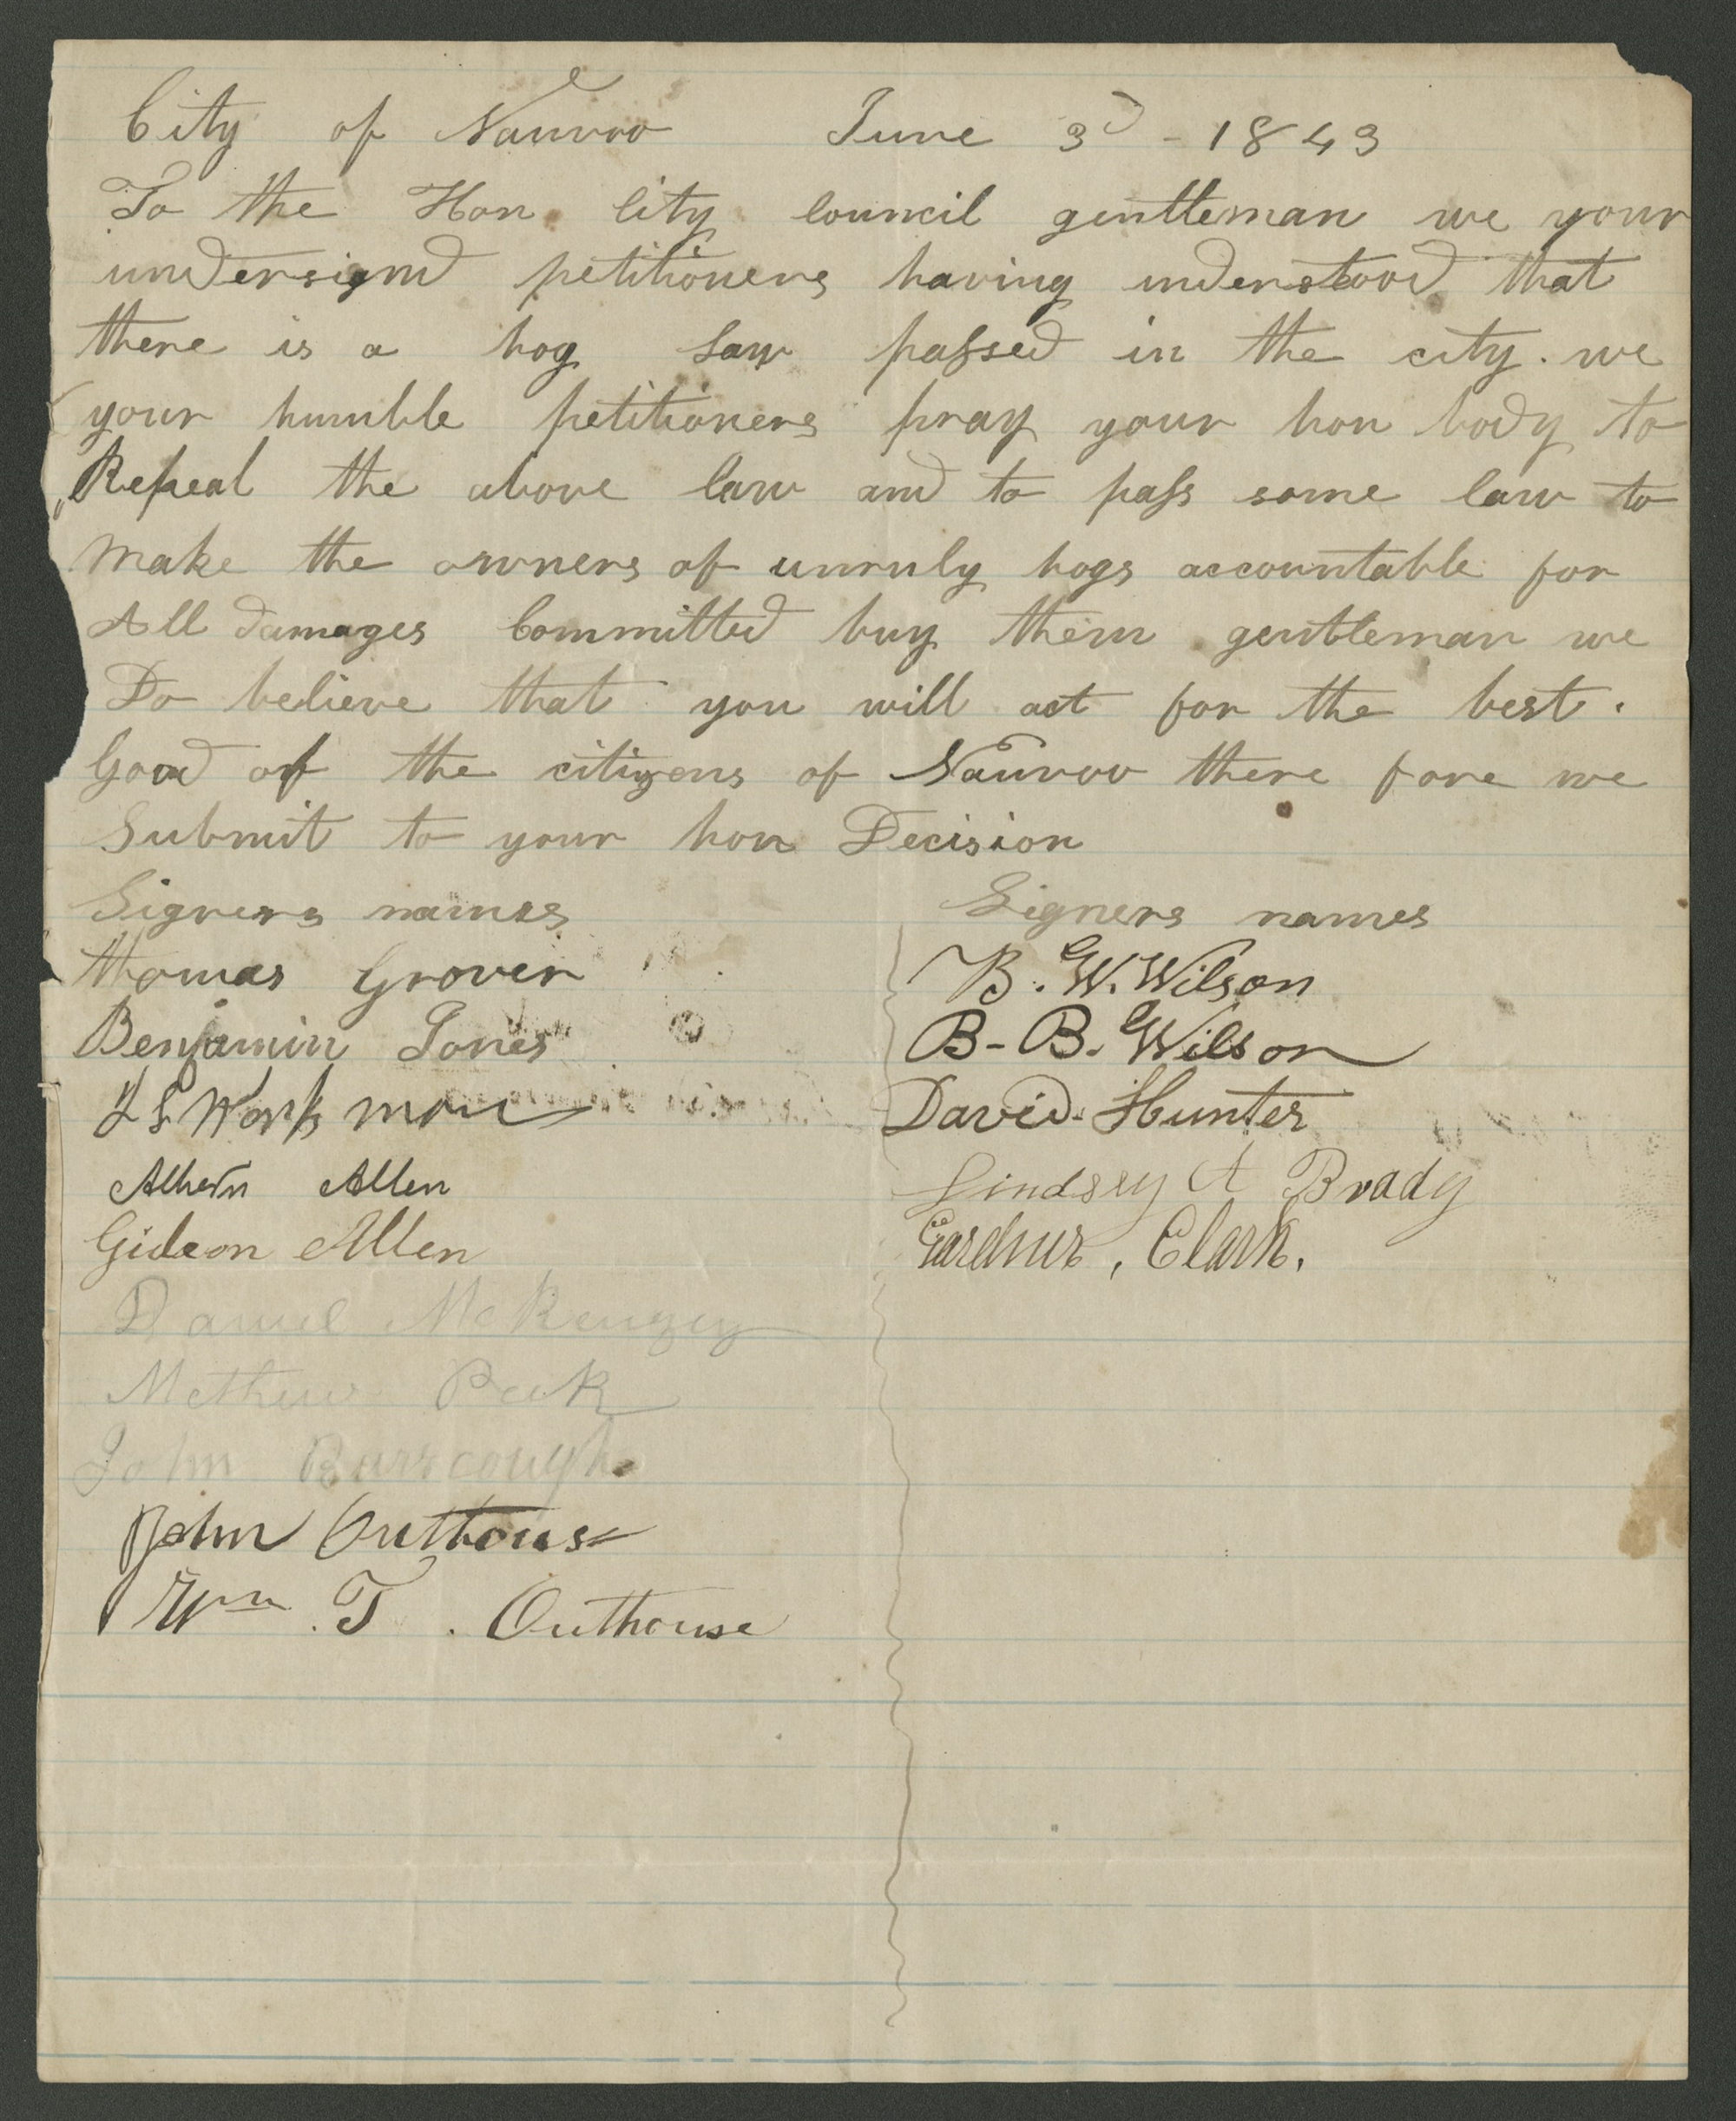 City of Nauvoo June 3d - 1843
To the Hon City Council gentleman we your
undersignd petitioners having understood that
there is a hog Law passed in the city. we
your humble petitioners pray your hon body to
Repeal the above law and to pass some law to
Make the owners of unruly hogs accountable for
All damages Committed buy them gentleman we
Do believe that you will act for the best.
Good of the citizens of Nauvoo there fore we
Submit to your hon Decision
Signers names
Thomas Grover
Benjamin Jones
Workman
Albern Allen
Gideon Allen
Daniel McKenzey
Methew Peck
John Burscough
John Outhouse
Wm. T. Outhouse
Signers names
B. W. Wilson
B- B. Wilson
David Hunter
Lindsey A Brady
Gardnur, Clark.